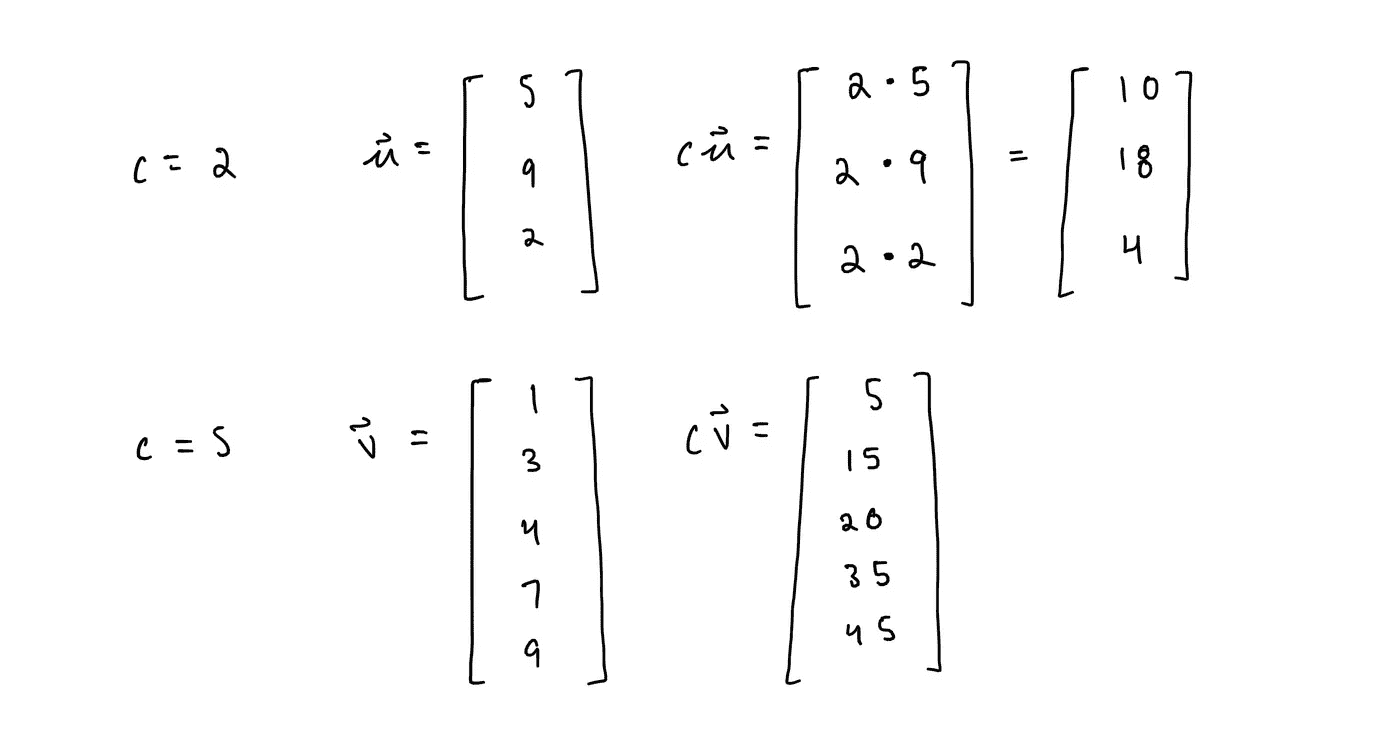 c = 2 u⃗ = [ 5 9 2 ] cu⃗ = [ 2 · 5 2 · 9 2 · 2 ] = [ 10 18 4 ]
c = 5 v⃗ = [ 1 3 4 7 9 ] cv⃗ = [ 5 15 20 35 45 ]